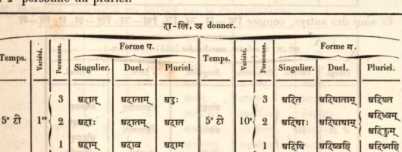 दा-लि, ञ donner.
Forme प. Forme म.
Temps. Variété. Personnes. Singulier. Duel. Pluriel. Temps. Variété. Personnes. Singulier. Duel. Pluriel.
3 अदात् अदाताम् अदुः 3 अदित अदिषाताम् अदिषत
5ᵉ टी 1ʳᵉ 2 अदाः अदातम् अदात 5ᵉ टी 10ᵉ 2 अदिथाः अदिषाथाम् अदिध्वम् अदिढ्वम्
1 अदाम् अदाव अदाम 1 अदिषि अदिष्वहि अदिष्महि